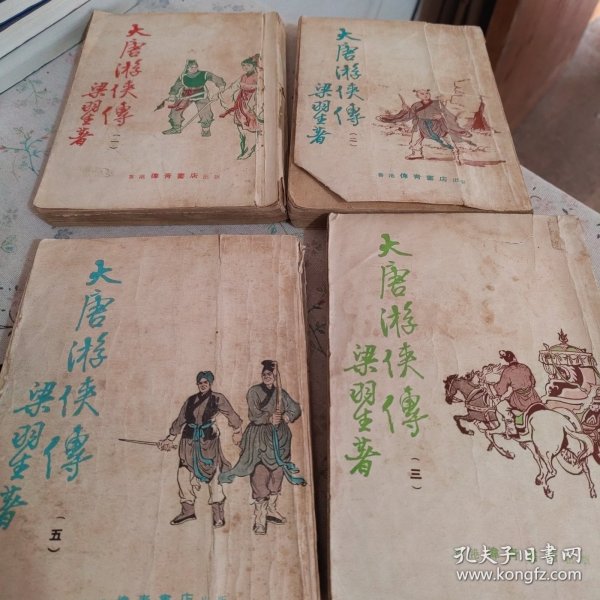 大唐游俠傳
(一)
梁羽生著
香港偉青書店出版
大唐游俠傳
(二)
梁羽生著
香港偉青書店出版
大唐游俠傳
(五)
梁羽生著
偉青書店出版
大唐游俠傳
(三)
梁羽生著
孔夫子旧书网
www.kongfz.com